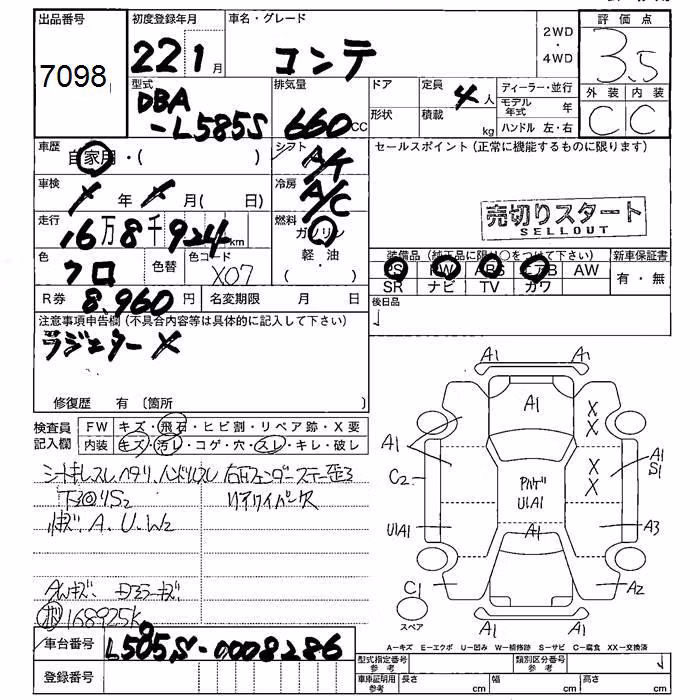 出品番号
7098
初度登録年月
22 1月
車名・グレード
コンテ
2WD
・
4WD
評価点
3.5
外装 内装
C C
型式
DBA
-L585S
排気量
660CC
ドア
形状
定員
4人
積載
kg
ディーラー・並行
モデル年式 年
ハンドル 左・右
車歴
自家用・( )
シフト
A/T
セールスポイント(正常に機能するものに限ります)
車検
年 月( 日)
冷房
A/C
売切りスタート
SELLOUT
走行
16万8千924km
燃料
ガソリン
軽・油
色
クロ
色替
色コード
X07
装備品(純正品に限り○をつけて下さい)
PS PW ABS エアB AW
SR ナビ TV カワ
新車保証書
有・無
R券
8,960円
名変期限 月 日
後日品
注意事項申告欄(不具合内容等は具体的に記入して下さい)
ラジエター X
修復歴 有〔箇所 〕
検査員
記入欄
FW キズ・飛石・ヒビ割・リペア跡・X要
内装 キズ・汚レ・コゲ・穴・スレ・キレ・破レ
シートキレスレ,ヘタリ,ハンドルスレ
右Fフェンダーステー歪3
下回りS2
リアワイパー欠
A.U.W2
168925k
A1 A1
A1
X
X
X
X
A1
C2
A1
S1
U1A1
U1A1
A1
A3
C1
A2
スペア
A1 A1
A=キズ E=エクボ U=凹み W=補修跡 S=サビ C=腐食 XX=交換済
車台番号
L585S-0008286
登録番号
型式指定番号
参考
類別区分番号
参考
車庫証明用
参考
長さ cm
幅 cm
高さ cm